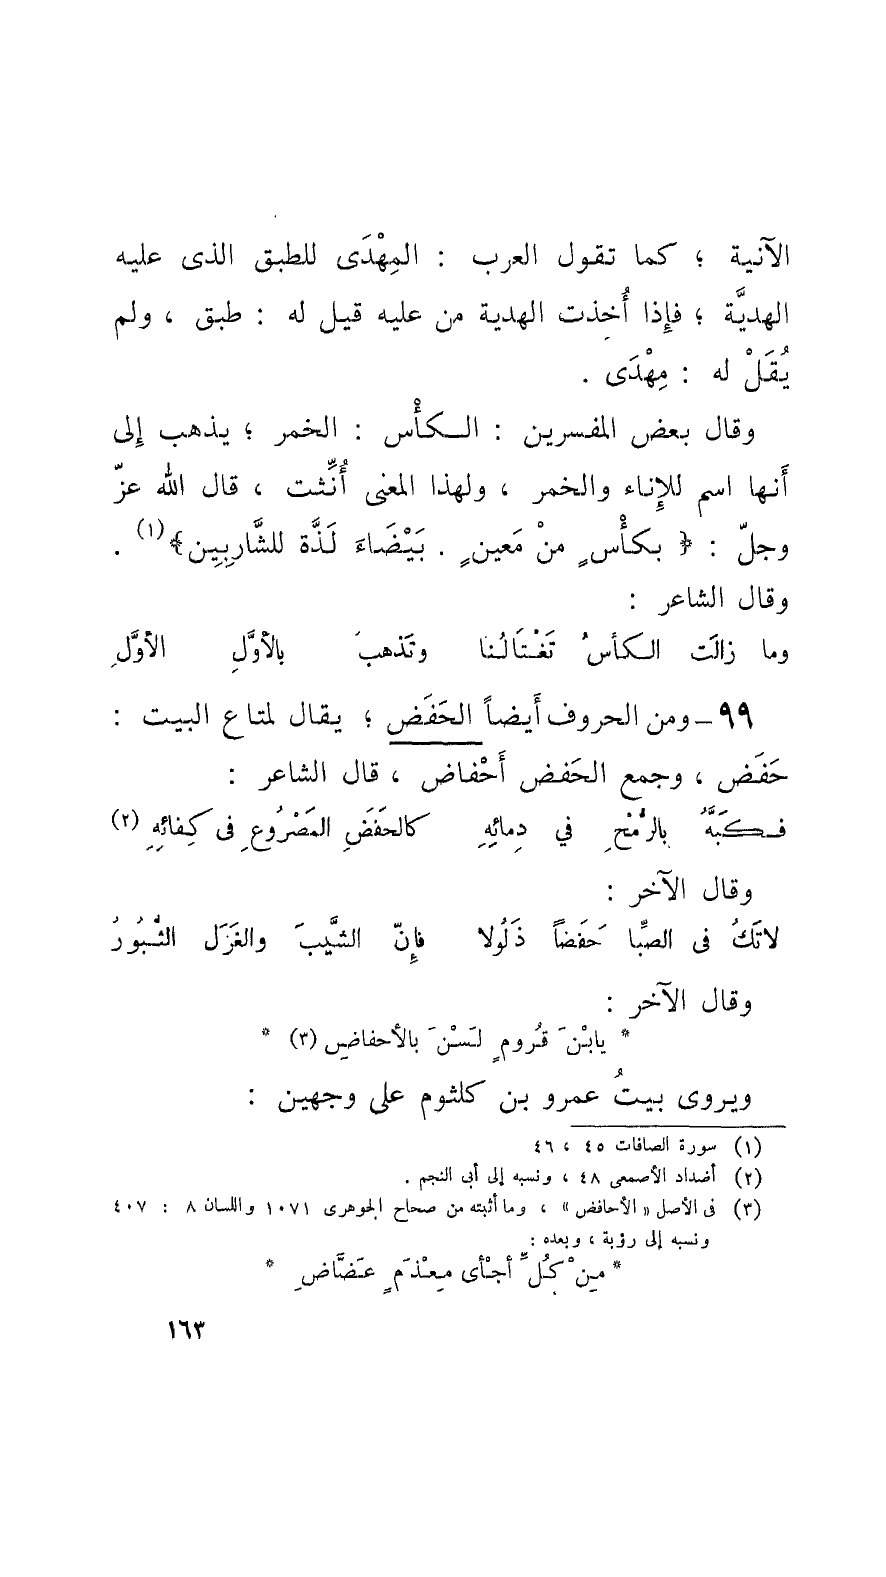 الآنية ؛ كما تقول العرب : المِهْدَى للطبق الذى عليه
الهديَّة ؛ فإِذا أُخِذت الهدية من عليه قيل له : طبق ، ولم
يُقَلْ له : مِهْدَى .
وقال بعض المفسرين : الكأْس : الخمر ؛ يذهب إِلى
أَنها اسم للإِناء والخمر ، ولهذا المعنى أُنِّثت ، قال الله عزّ
وجلّ : ﴿ بكأْسٍ منْ مَعينٍ . بَيْضَاءَ لَذَّة للشَّارِبِين﴾(١) .
وقال الشاعر :
وما زالَت الكأسُ تَغْتَالُنا وتَذهبُ بالأوَّلِ الأوَّلِ
٩٩ ــ ومن الحروف أَيضاً الحَفَض ؛ يقال لمتاع البيت :
حَفَض ، وجمع الحَفَض أَحْفاض ، قال الشاعر :
فكَبَّهُ بالرُّمْحِ في دِمائِهِ كالحَفَضِ المَصْرُوعِ فى كِفائِهِ (٢)
وقال الآخر :
لاتَكُ فى الصِّبا حَفَضاً ذَلُولا فإنّ الشَّيبَ والغَزَل الثُّبُورُ
وقال الآخر :
* يابْنَ قُرومٍ لَسْنَ بالأحفاضِ (٣) *
ويروى بيتُ عمرو بن كلثوم على وجهين :
(١) سورة الصافات ٤٥ ، ٤٦
(٢) أضداد الأصمعى ٤٨ ، ونسبه إلى أبى النجم .
(٣) فى الأصل « الأحافض » ، وما أثبته من صحاح الجوهرى ١٠٧١ واللسان ٨ : ٤٠٧
ونسبه إلى رؤبة ، وبعده :
* مِنْ كُلِّ أجْأى مِعْذَمٍ عَضَّاضِ *
١٦٣